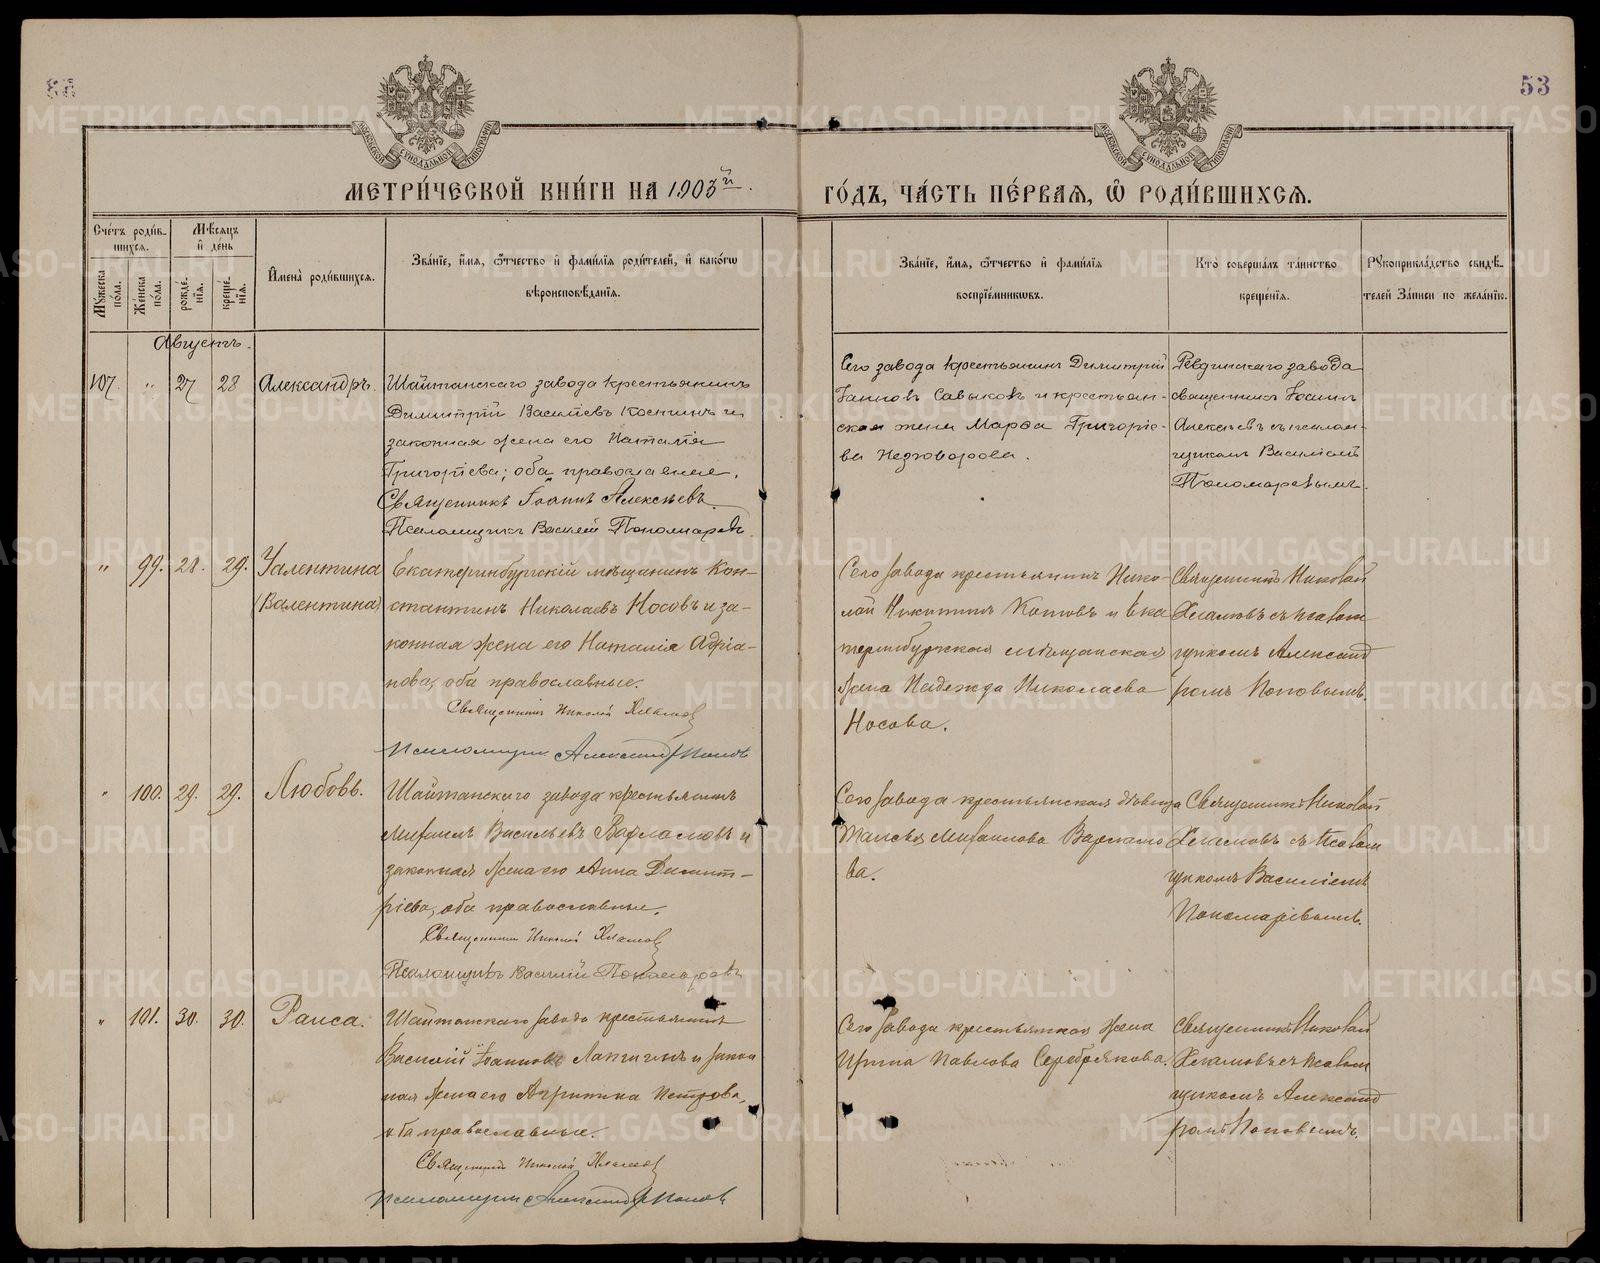 53
МОСКОВСКОЙ СѴНОДАЛЬНОЙ ТИПОГРАФІИ
МОСКОВСКОЙ СѴНОДАЛЬНОЙ ТИПОГРАФІИ
МЕТРИ́ЧЕСКОЙ КНИ́ГИ НА 1903й
ГО́ДЪ, ЧА́СТЬ ПЕ́РВАЯ, Ѡ҆ РОДИ́ВШИХСЯ.
Сче́тъ роди́в-
шихся.
Мꙋжеска по́ла.
Же́нска по́ла.
Мѣ́сяцъ
и҆ де́нь
рожде́-
нїя.
креще́-
нїя.
И҆мена̀ роди́вшихся.
Зва́нїе, и҆́мя, ѻ҆́тчество и҆ фами́лїя роди́телей, и҆ како́гѡ
вѣроисповѣ́данїя.
Зва́нїе, и҆́мя, ѻ҆́тчество и҆ фами́лїя
воспрїе́мникѡвъ.
Кто̀ соверша́лъ та́инство
креще́нїя.
Рꙋкоприкла́дство свидѣ́-
телей за́писи по жела́нїю.
Августъ.
107. " 27 28 Александръ.
Шайтанскаго завода крестьянинъ
Димитрій Васильевъ Коснинъ и
законная жена его Наталія
Григоріева; оба православные.
Священникъ Іоаннъ Алексѣевъ
Псаломщикъ Василій Пономаревъ
Сего завода крестьянинъ Димитрій
Іанновъ Савыковъ и крестьян-
ская жена Марѳа Григоріе-
ва
Ревдинскаго завода
священникъ Іоаннъ
Алексѣевъ съ псалом-
щикомъ Василіемъ
Пономаревымъ.
" 99. 28. 29. Уалентина
(Валентина)
Екатеринбургскій мѣщанинъ Кон-
стантинъ Николаевъ Носовъ и за-
конная жена его Наталія Адріа-
нова, оба православные.
Священникъ Николай Хламовъ
Псаломщикъ Александръ Поповъ
Сего завода крестьянинъ Нико-
лай Никитинъ Котовъ и Ека
теринбургская мѣщанская
жена Надежда Николаева
Носова.
Священникъ Николай
Хламовъ съ псалом
щикомъ Александ
ромъ Поповымъ.
" 100. 29. 29. Любовь.
Шайтанскаго завода крестьянинъ
Михаилъ Васильевъ Варламовъ и
законная жена его Анна Димит-
ріева, оба православные.
Священникъ Николай Хламовъ
Псаломщикъ Василій Пономаревъ
Сего завода крестьянская дѣвица
Таисія Михаилова Варламо
ва.
Священникъ Николай
Хламовъ съ псалом
щикомъ Василіемъ
Пономаревымъ.
" 101. 30. 30. Раиса.
Шайтанскаго завода крестьянинъ
Василій Іоанновъ Лапшинъ и закон
ная жена его Агрипина Петрова,
оба православные.
Священникъ Николай Хламовъ
Псаломщикъ Александръ Поповъ
Сего завода крестьянская жена
Ирина Павлова Серебрякова.
Священникъ Николай
Хламовъ съ псалом
щикомъ Александ
ромъ Поповымъ.
METRIKI.GASO-URAL.RU